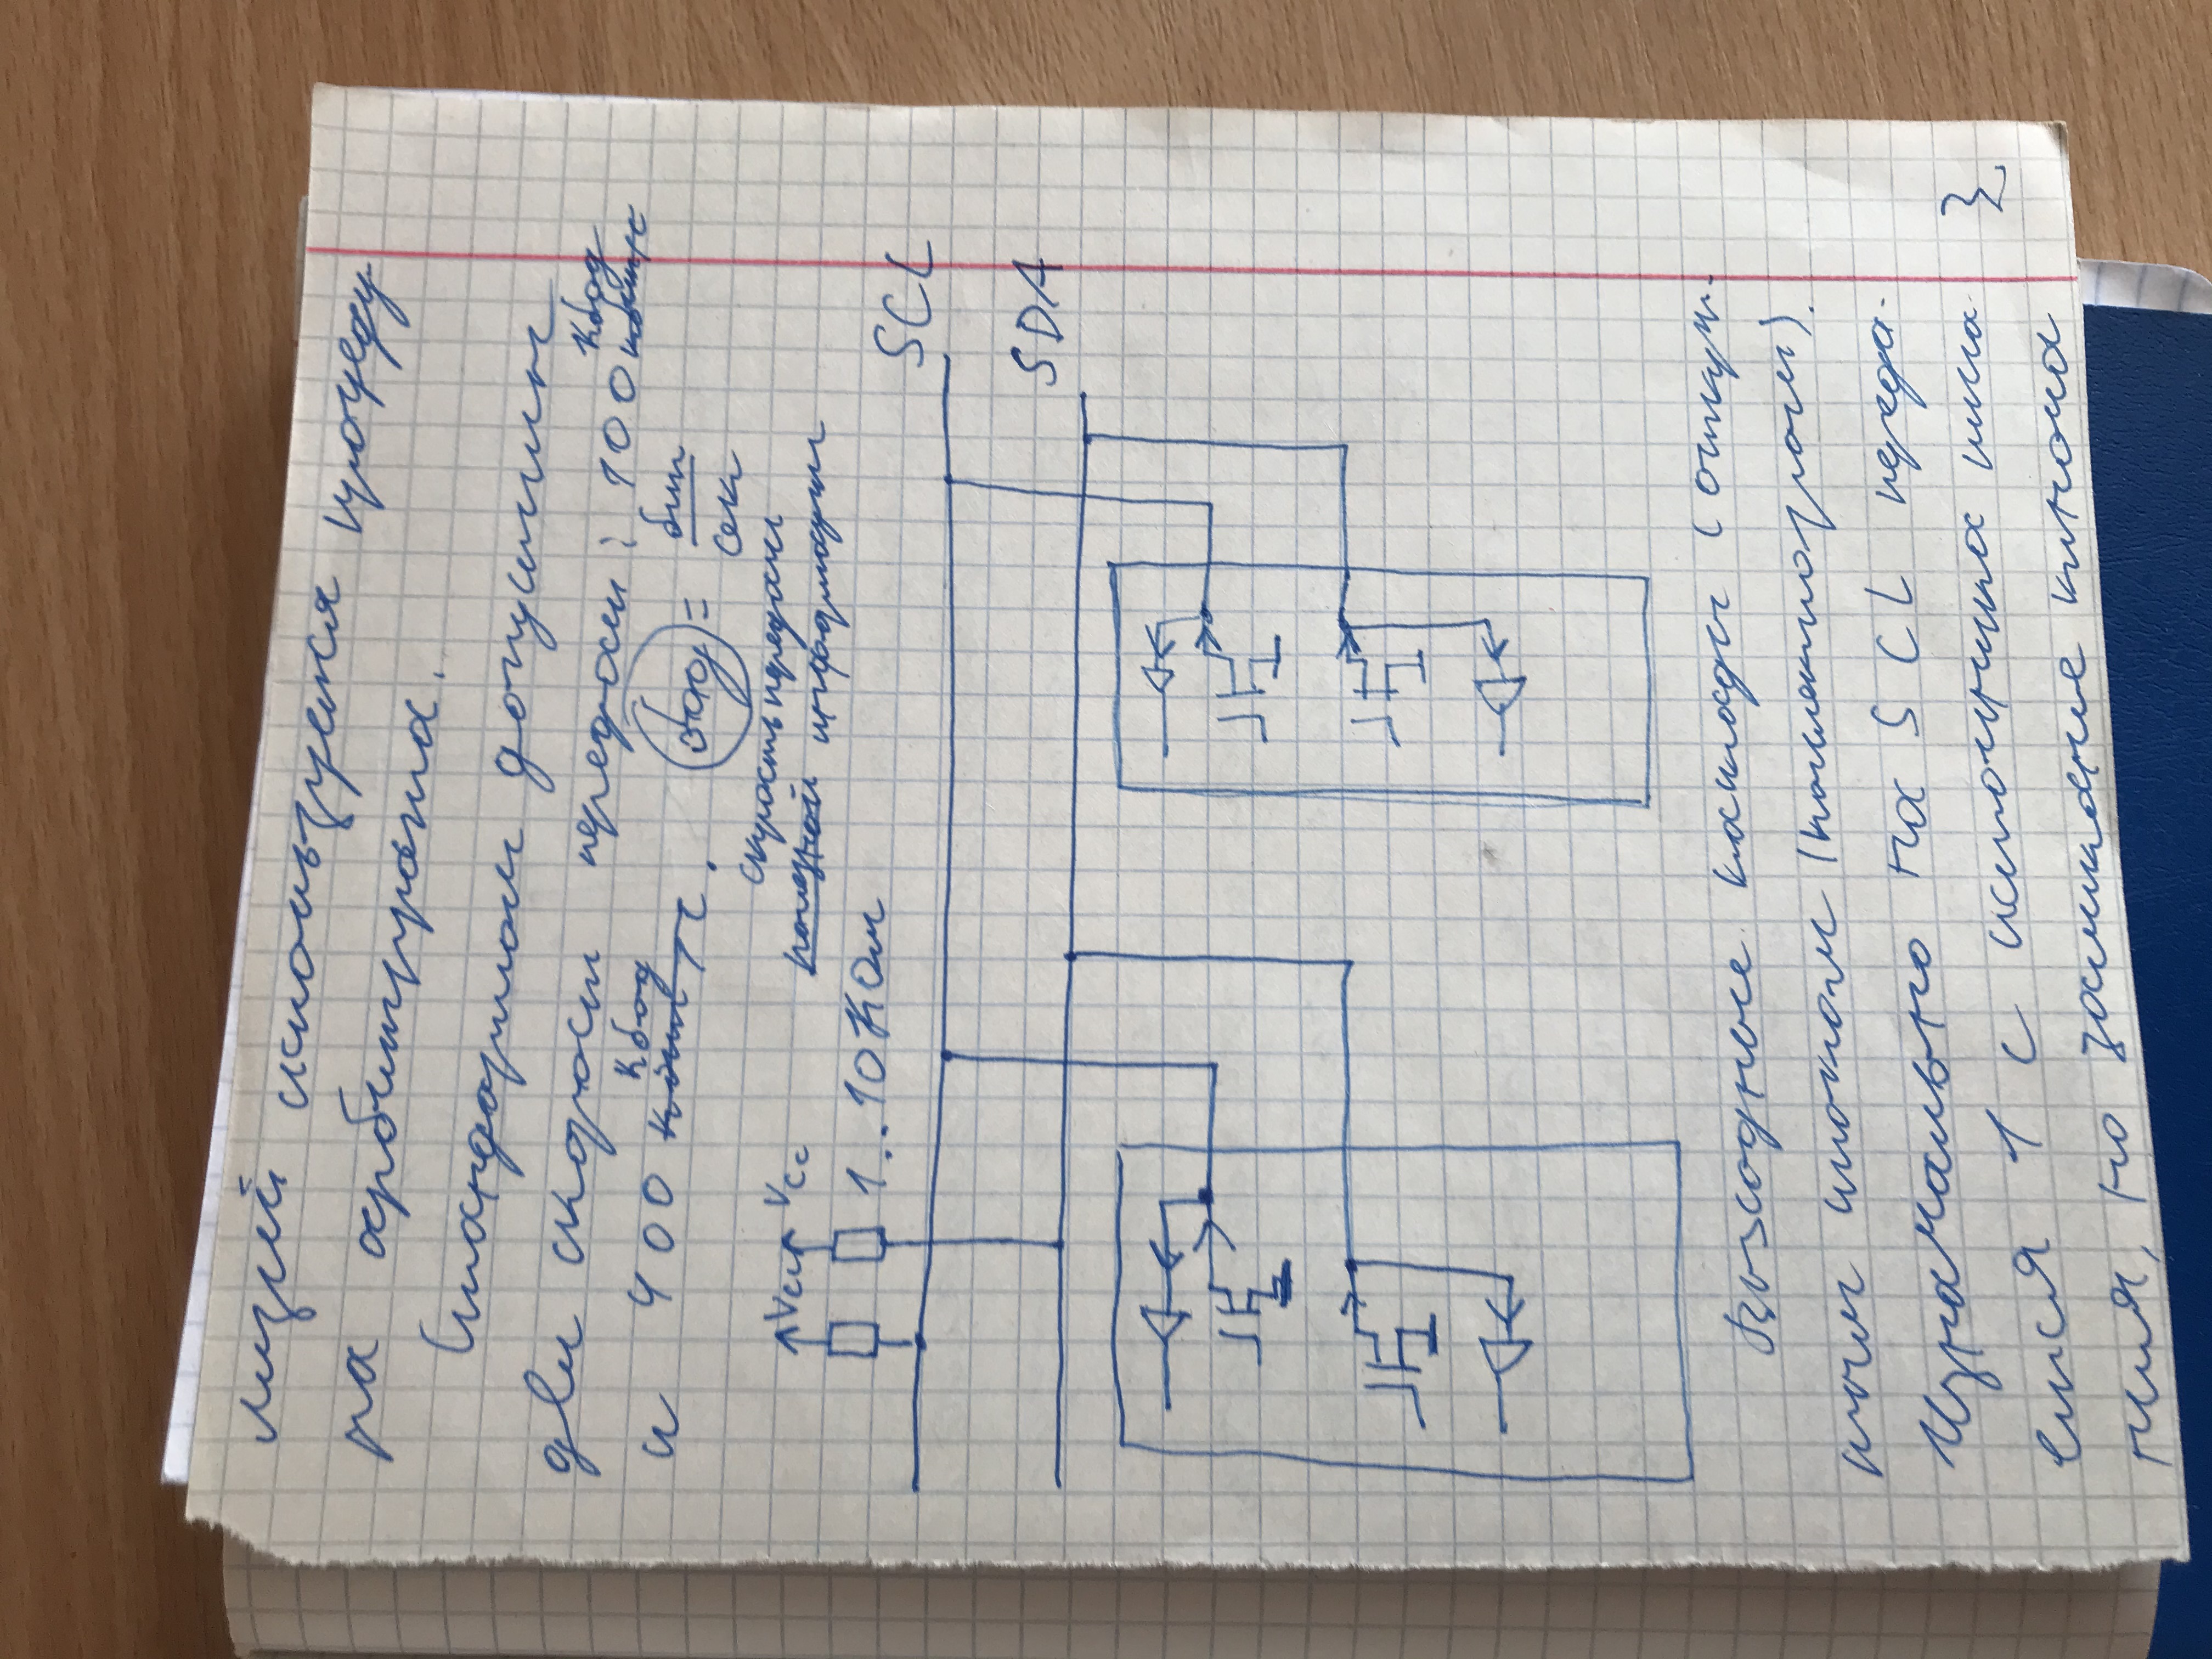 лизий используется процеду-
ра арбитрража.
Стандартом допустимы
две скорости передачи: 100 Кбод кбит/с
и 400 Кбод кбит/с. бод = бит/сек
скорость передачи
полезной информации
Vcc Vcc
1..10 КОм
SCL
SDA
Выходные каскады с откры-
тым стоком (коллектором).
Изначально на SCL переда-
ется 1 с источника пита-
ния, но замыкание ключа
}